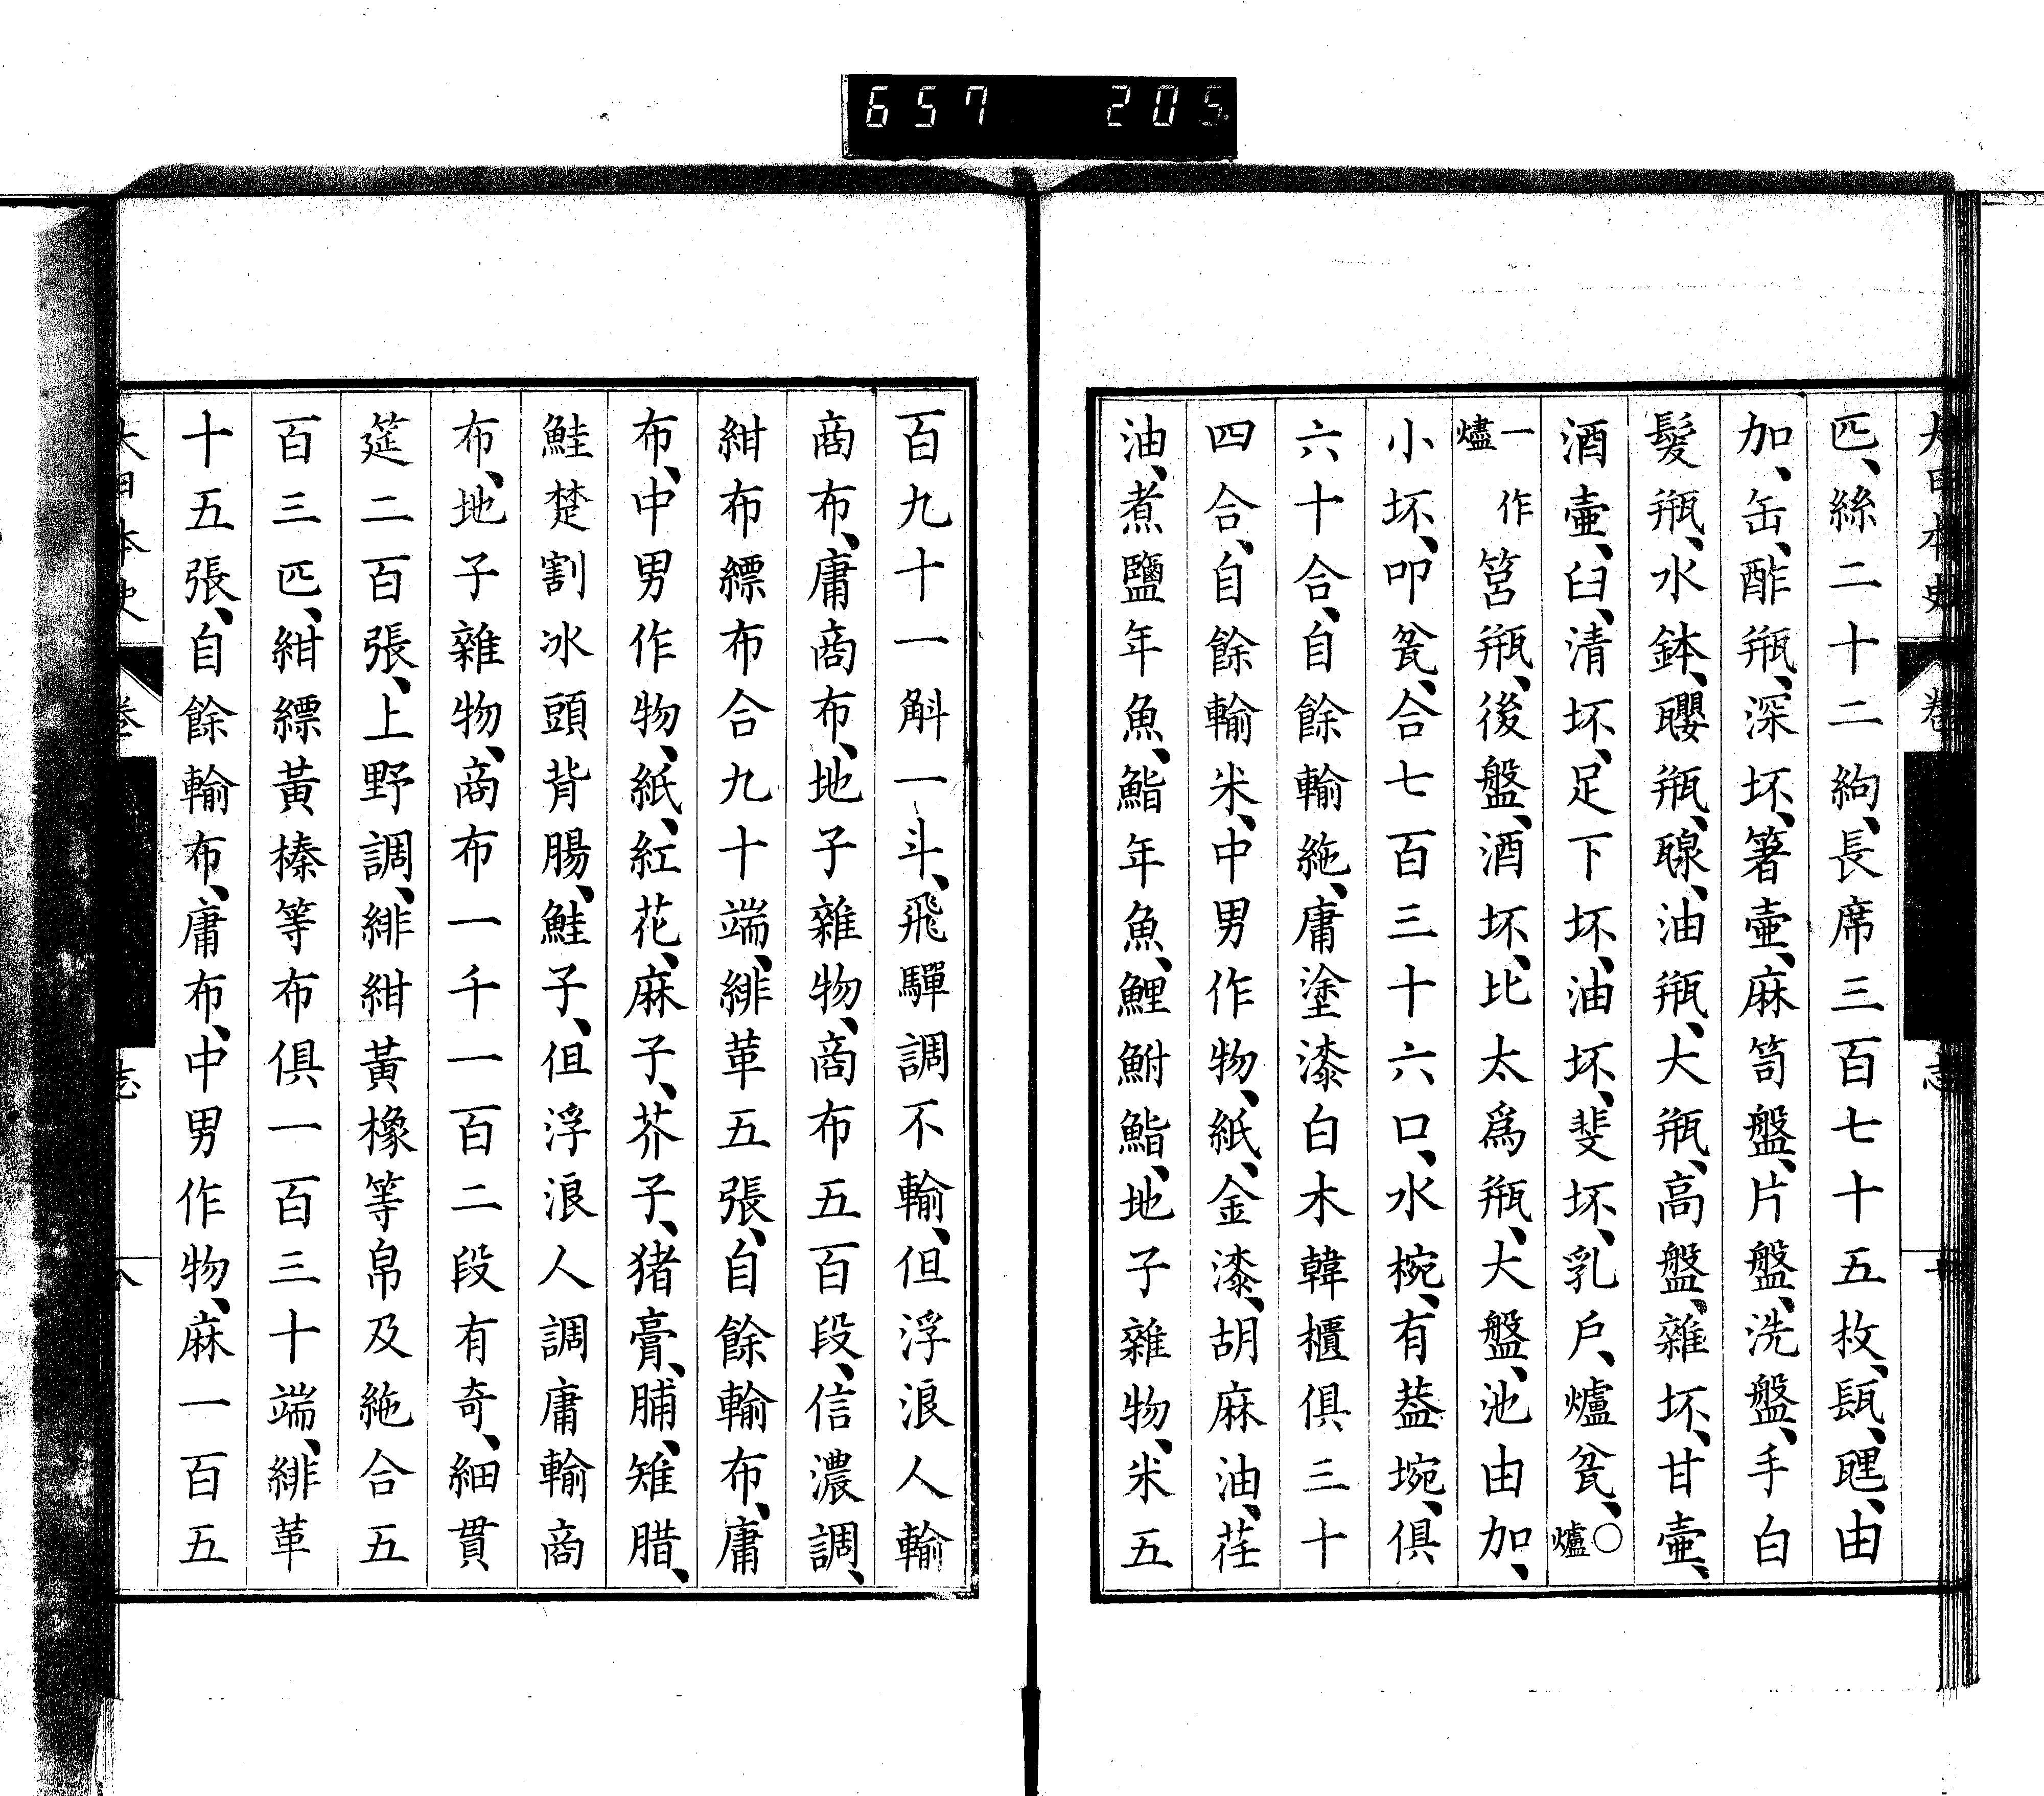 657 205
匹、絲二十二絇、長席三百七十五枚、瓺、𦉥、由
加、缶、酢瓶、深坏、箸壷、麻笥盤、片盤、洗盤、手白
髮瓶、水鉢、瓶、油瓶、大瓶、高盤、雜坏、甘壷、
酒壷、臼、清坏、足下坏、油坏、斐坏、乳戶、爐瓫、○爐
一作爐
筥瓶、後盤、酒坏、比太爲瓶、大盤、池由加、
小坏、叩瓫、合七百三十六口、水椀、有葢埦、俱
六十合、自餘輸絁、庸塗漆白木韓櫃俱三十
四合、自餘輸米、中男作物、紙、金漆、胡麻油、荏
油、煮鹽年魚、鮨年魚、鯉鮒鮨、地子雜物、米五
百九十一斛一斗、飛驒調不輸、但浮浪人輸
商布、庸商布、地子雜物、商布五百段、信濃調、
紺布縹布合九十端、緋革五張、自餘輸布、庸
布、中男作物、紙、紅花、麻子、芥子、猪膏、脯、雉腊、
鮭楚割氷頭背腸、鮭子、但浮浪人調庸輸商
布、地子雜物、商布一千一百二段有奇、細貫
筵二百張、上野調、緋紺黃橡等帛及絁合五
百三匹、紺縹黃榛等布俱一百三十端、緋革
十五張、自餘輸布、庸布、中男作物、麻一百五
大日本史
卷
志
八